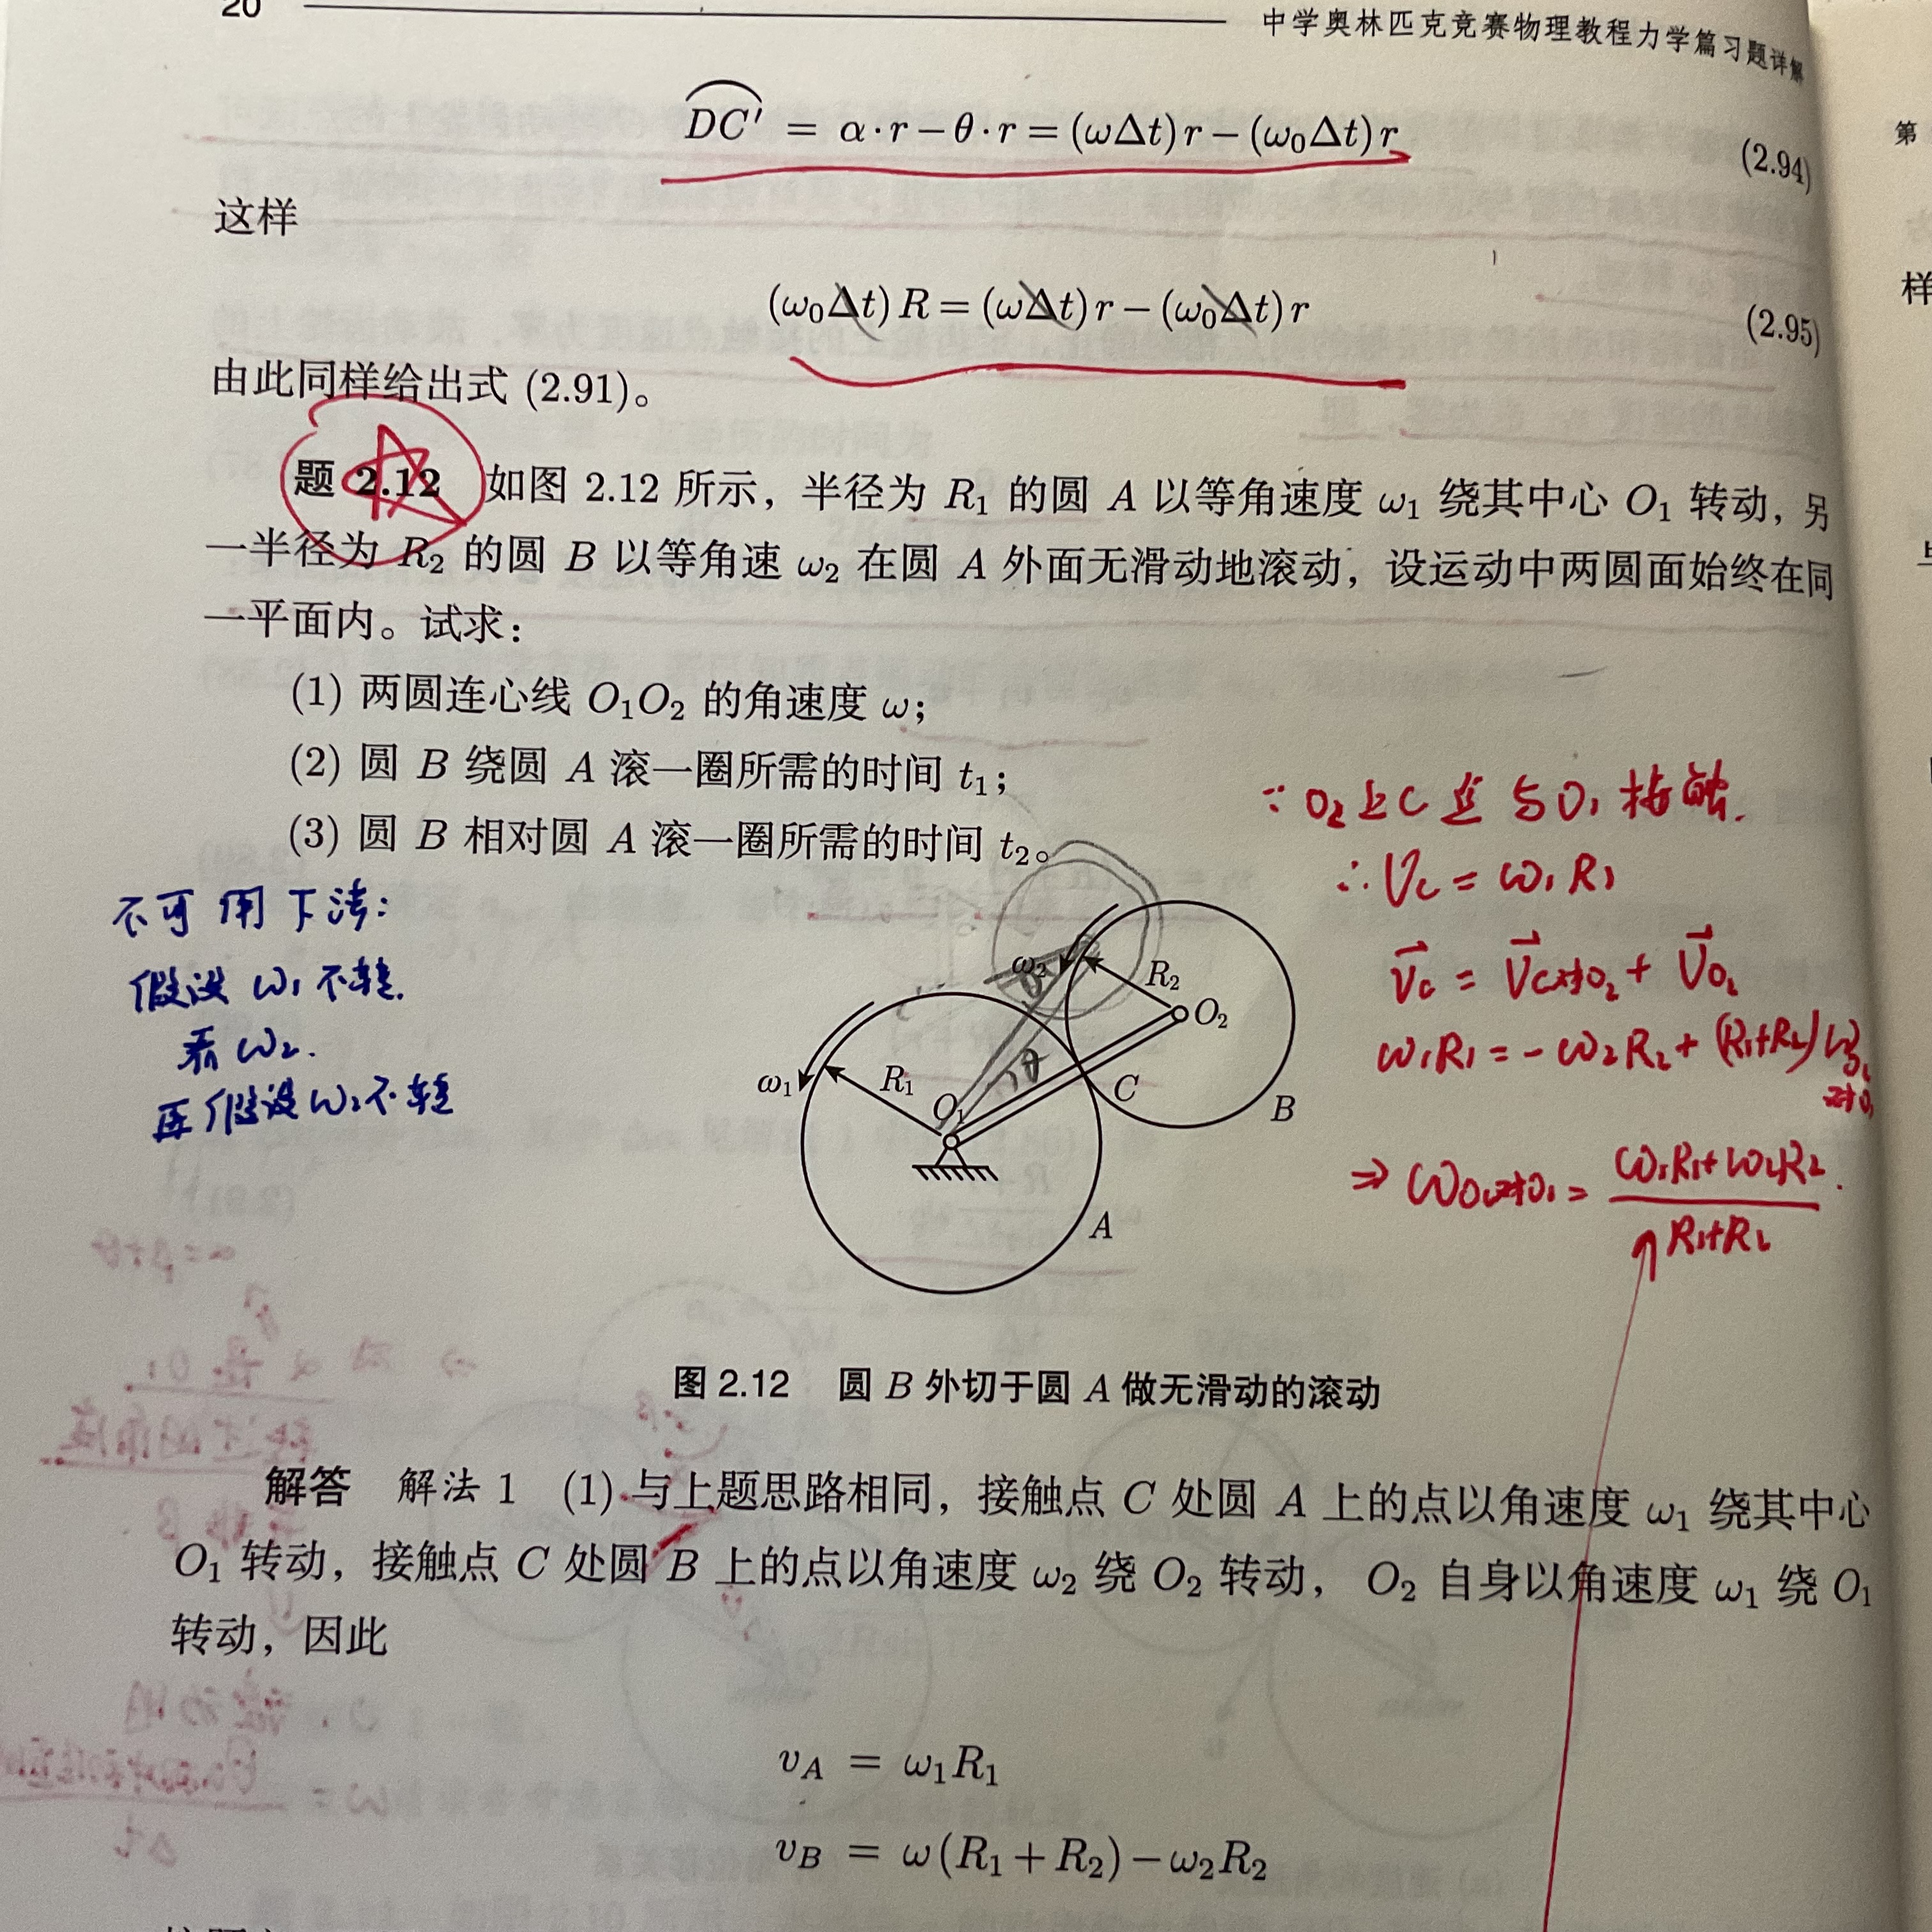 20
中学奥林匹克竞赛物理教程力学篇习题详解
DC' = α·r−θ·r=(ωΔt)r−(ω₀Δt)r (2.94)
第
这样
样
(ω₀Δt)R=(ωΔt)r−(ω₀Δt)r (2.95)
由此同样给出式 (2.91)。
题 2.12 如图 2.12 所示，半径为 R₁ 的圆 A 以等角速度 ω₁ 绕其中心 O₁ 转动，另
一半径为 R₂ 的圆 B 以等角速 ω₂ 在圆 A 外面无滑动地滚动，设运动中两圆面始终在同
一平面内。试求：
(1) 两圆连心线 O₁O₂ 的角速度 ω；
(2) 圆 B 绕圆 A 滚一圈所需的时间 t₁；
(3) 圆 B 相对圆 A 滚一圈所需的时间 t₂。
不可用下法：
假设 ω₁ 不转.
看 ω₂.
再假设 ω₂不转
∵ O₂上C点与O₁接触.
∴ Vc = ω₁R₁
Vc = Vc对O₂ + VO₂
ω₁R₁ = -ω₂R₂ + (R₁+R₂)
⇒ ωO₂对O₁ = ω₁R₁+ω₂R₂ / R₁+R₂ .
ω₂
R₂
O₂
θ
ω₁
R₁
O₁
C
B
A
图 2.12 圆 B 外切于圆 A 做无滑动的滚动
解答 解法 1 (1) 与上题思路相同，接触点 C 处圆 A 上的点以角速度 ω₁ 绕其中心
O₁ 转动，接触点 C 处圆 B 上的点以角速度 ω₂ 绕 O₂ 转动， O₂ 自身以角速度 ω₁ 绕 O₁
转动，因此
v_A = ω₁R₁
v_B = ω(R₁+R₂)−ω₂R₂